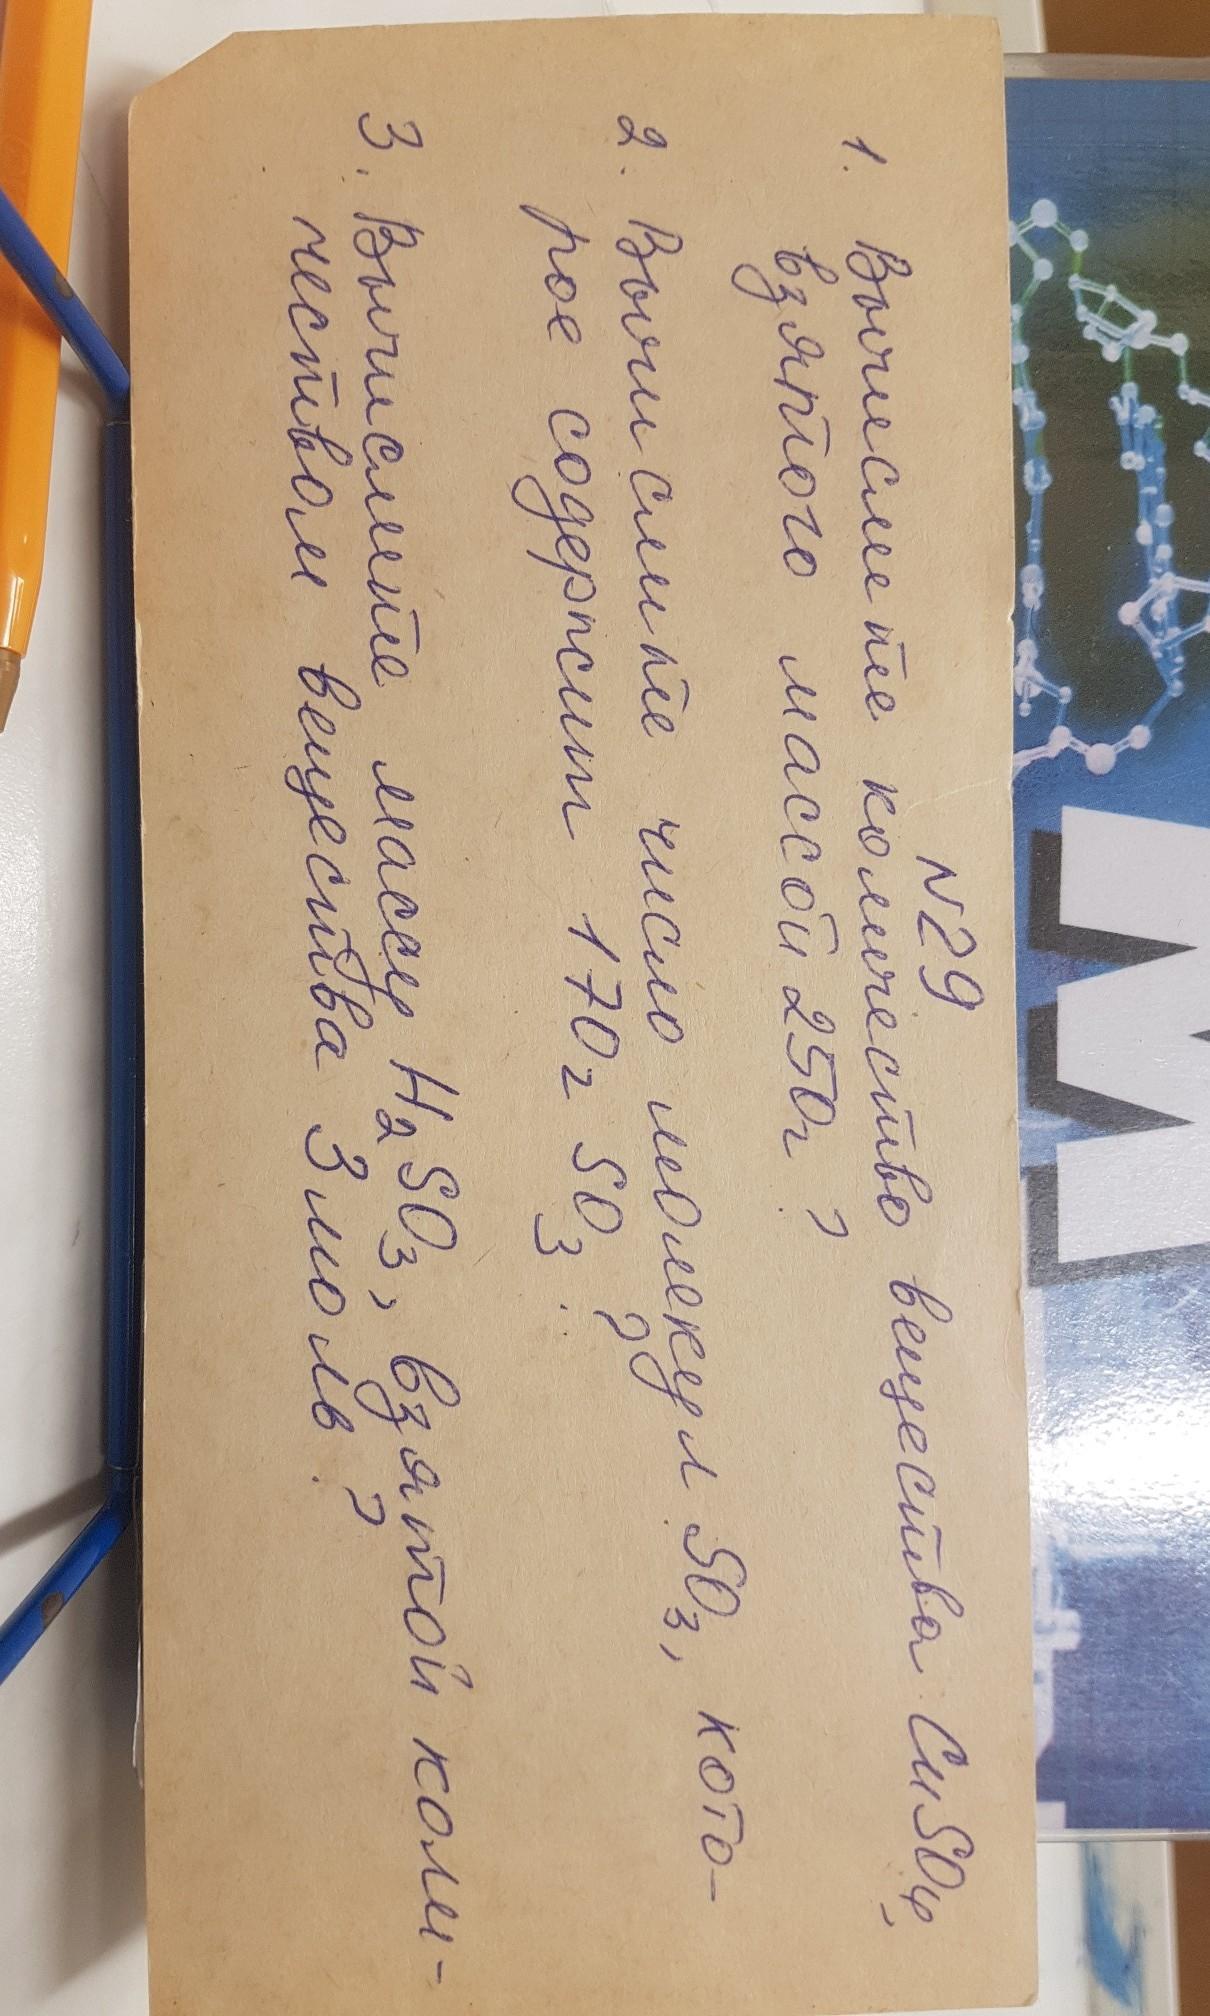 N29
1. Вычислите количество вещества CuSO4,
взятого массой 250г?
2. Вычислите число молекул SO3, кото-
рое содержит 170г SO3?
3. Вычислите массу H2SO3, взятой коли-
чеством вещества 3 моль?